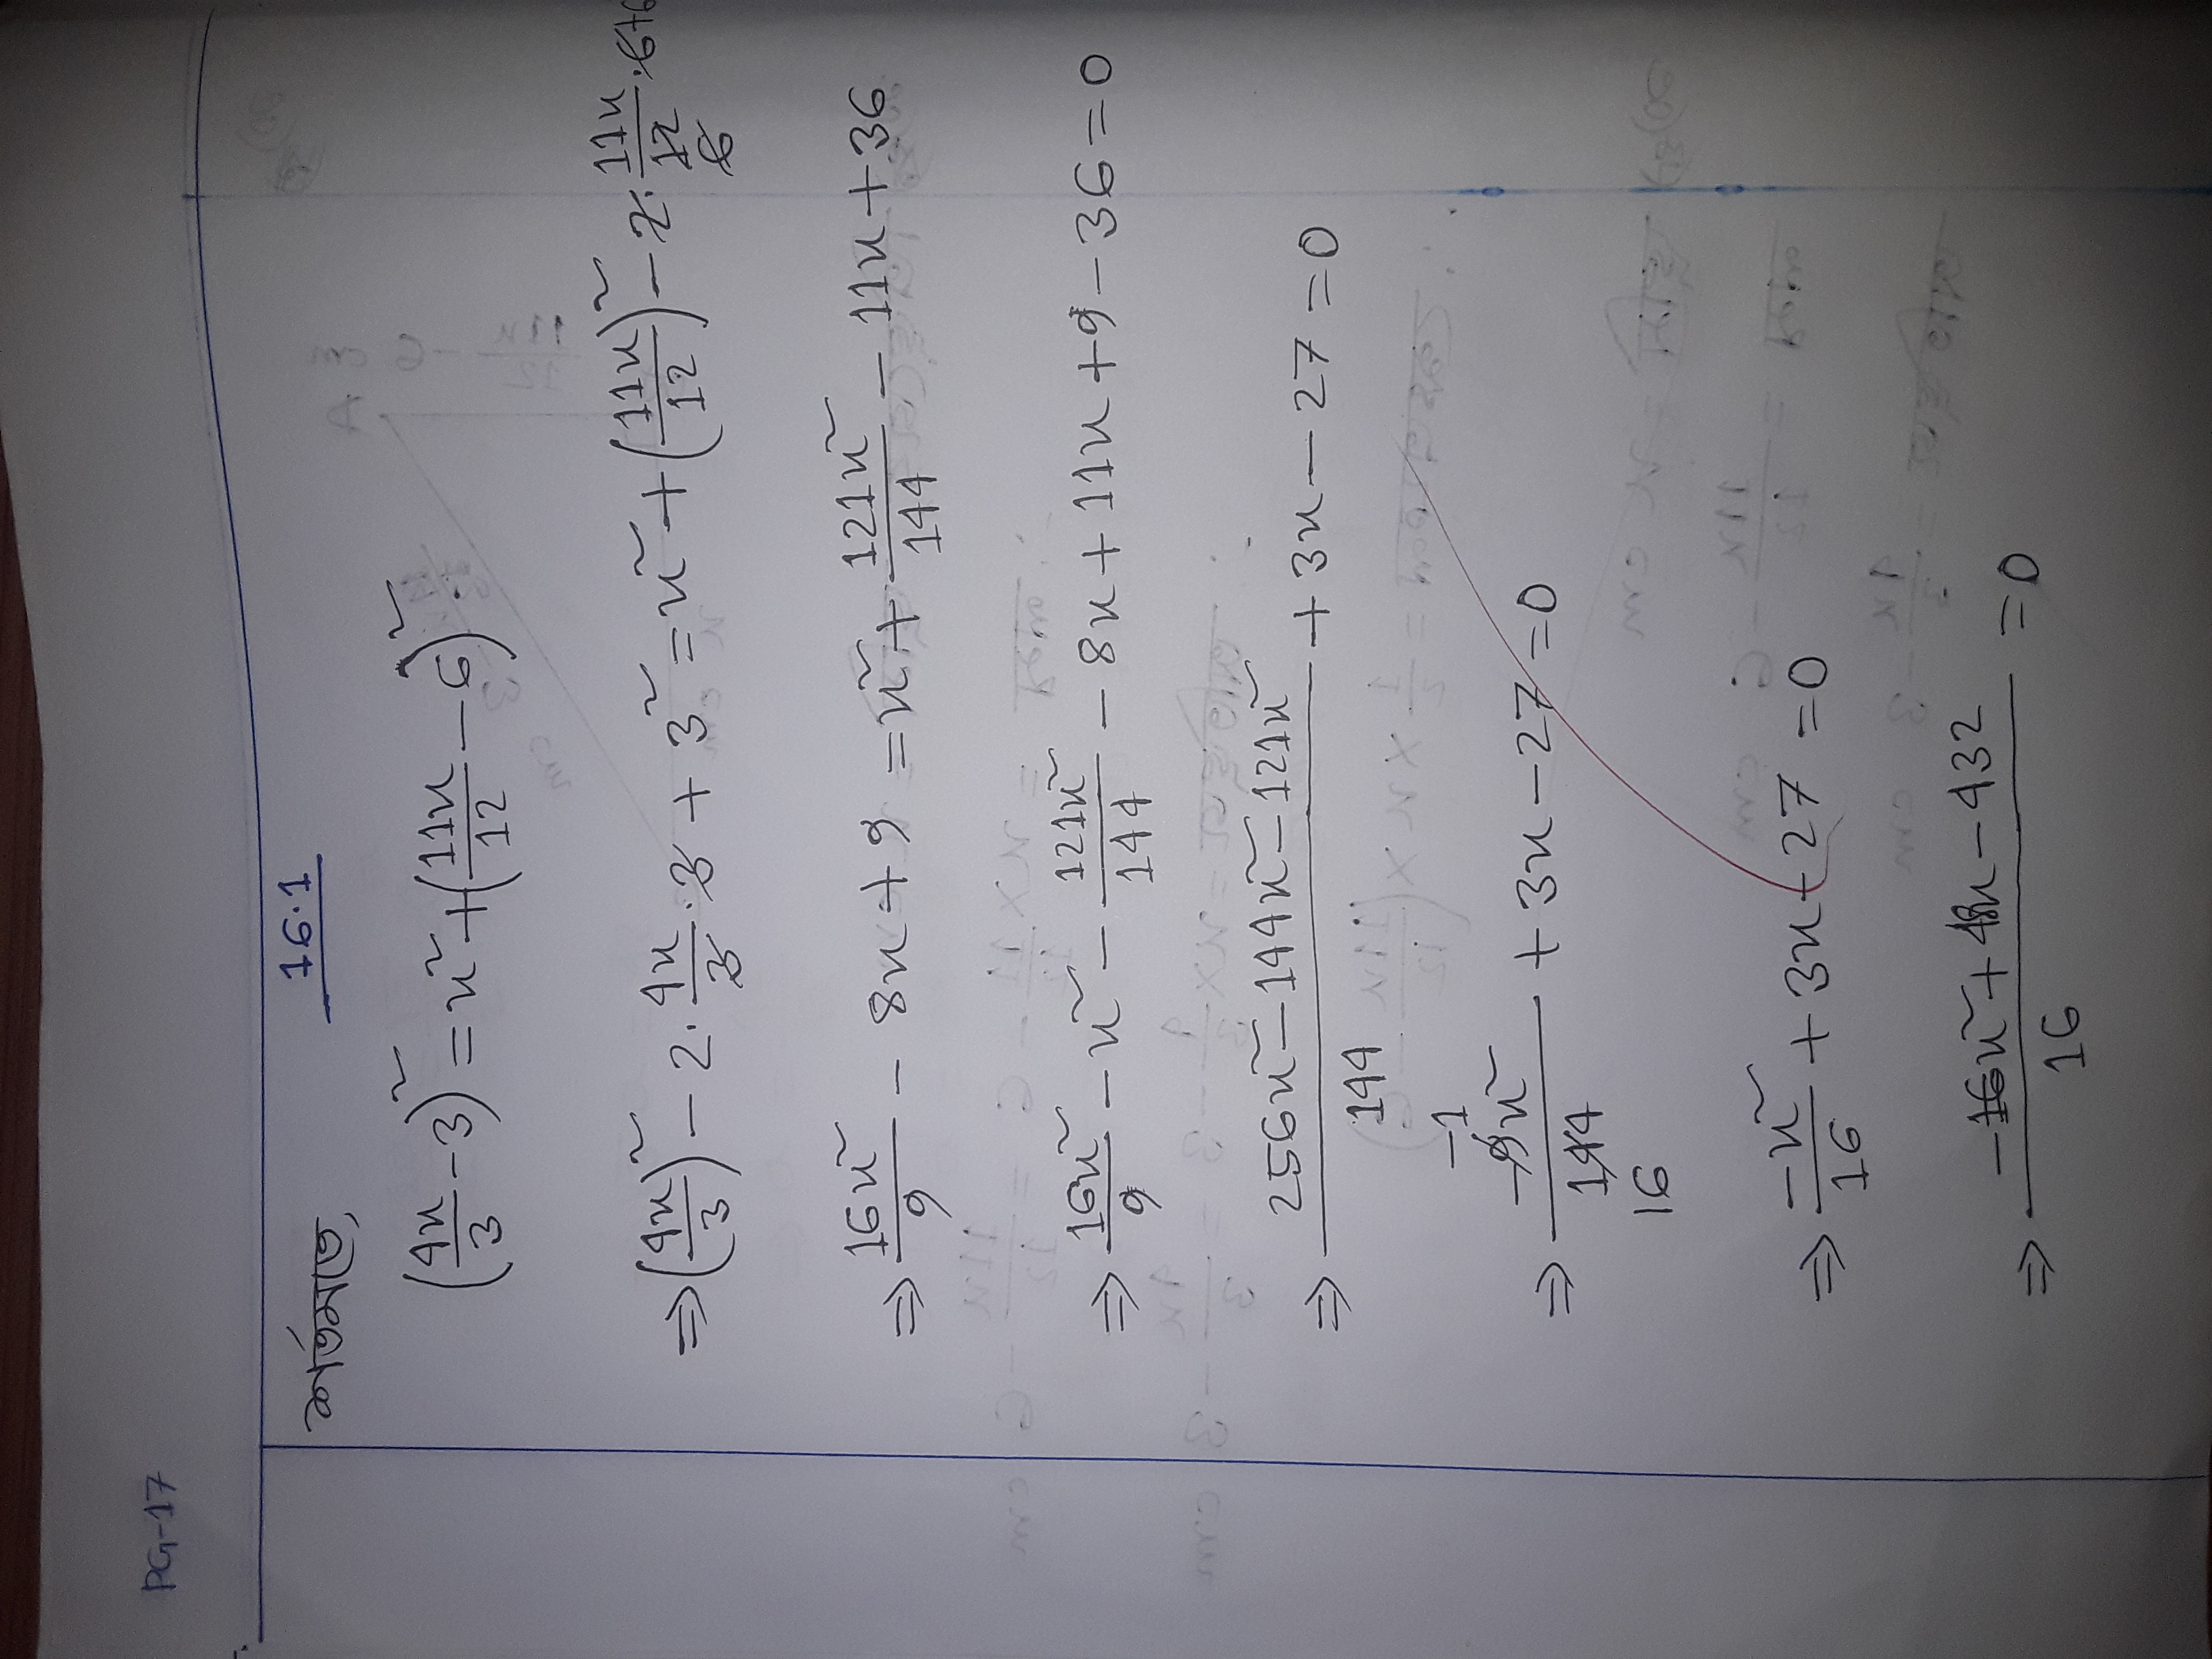 PG-17
16.1
শর্তমতে,
(4x/3 - 3)² = x² + (11x/12 - 6)²
⇒ (4x/3)² - 2. 4x/3 . 3 + 3² = x² + (11x/12)² - 2. 11x/12 . 6+6
6
⇒ 16x²/9 - 8x + 9 = x² + 121x²/144 - 11x + 36
⇒ 16x²/9 - x² - 121x²/144 - 8x + 11x + 9 - 36 = 0
⇒ (256x² - 144x² - 121x²)/144 + 3x - 27 = 0
-1
⇒ -9x²/144 + 3x - 27 = 0
16
⇒ -x²/16 + 3x - 27 = 0
⇒ (-16x² + 48x - 432)/16 = 0